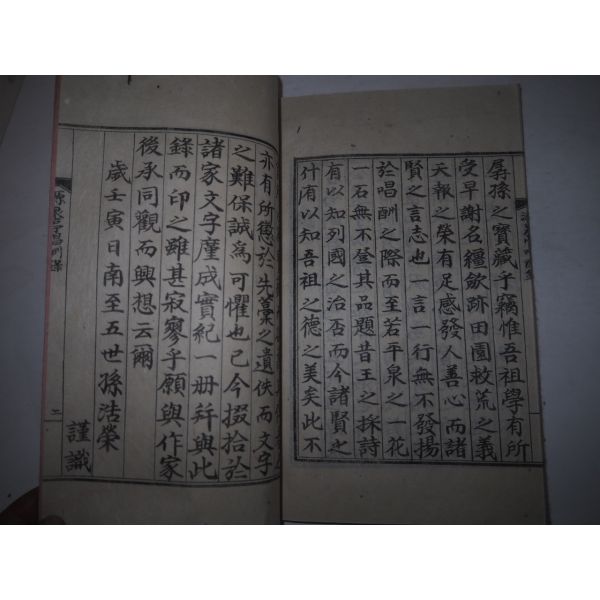 孱孫之寶藏乎竊惟吾祖學有所
受早謝名韁歛跡田園救荒之義
天報之榮有足感發人善心而諸
賢之言志也一言一行無不發揚
於唱酬之際而至若平泉之一花
一石無不屋其品題昔王之採詩
有以知列國之治否而今諸賢之
什有以知吾祖之德之美矣此不
亦有所懲於先藁之遺佚而文字
之難保誠爲可懼也已今掇拾於
諸家文字廑成實紀一册幷與此
錄而印之雖甚寂寥乎願與作家
後承同觀而興想云爾
歲壬寅日南至五世孫浩榮
謹識
二